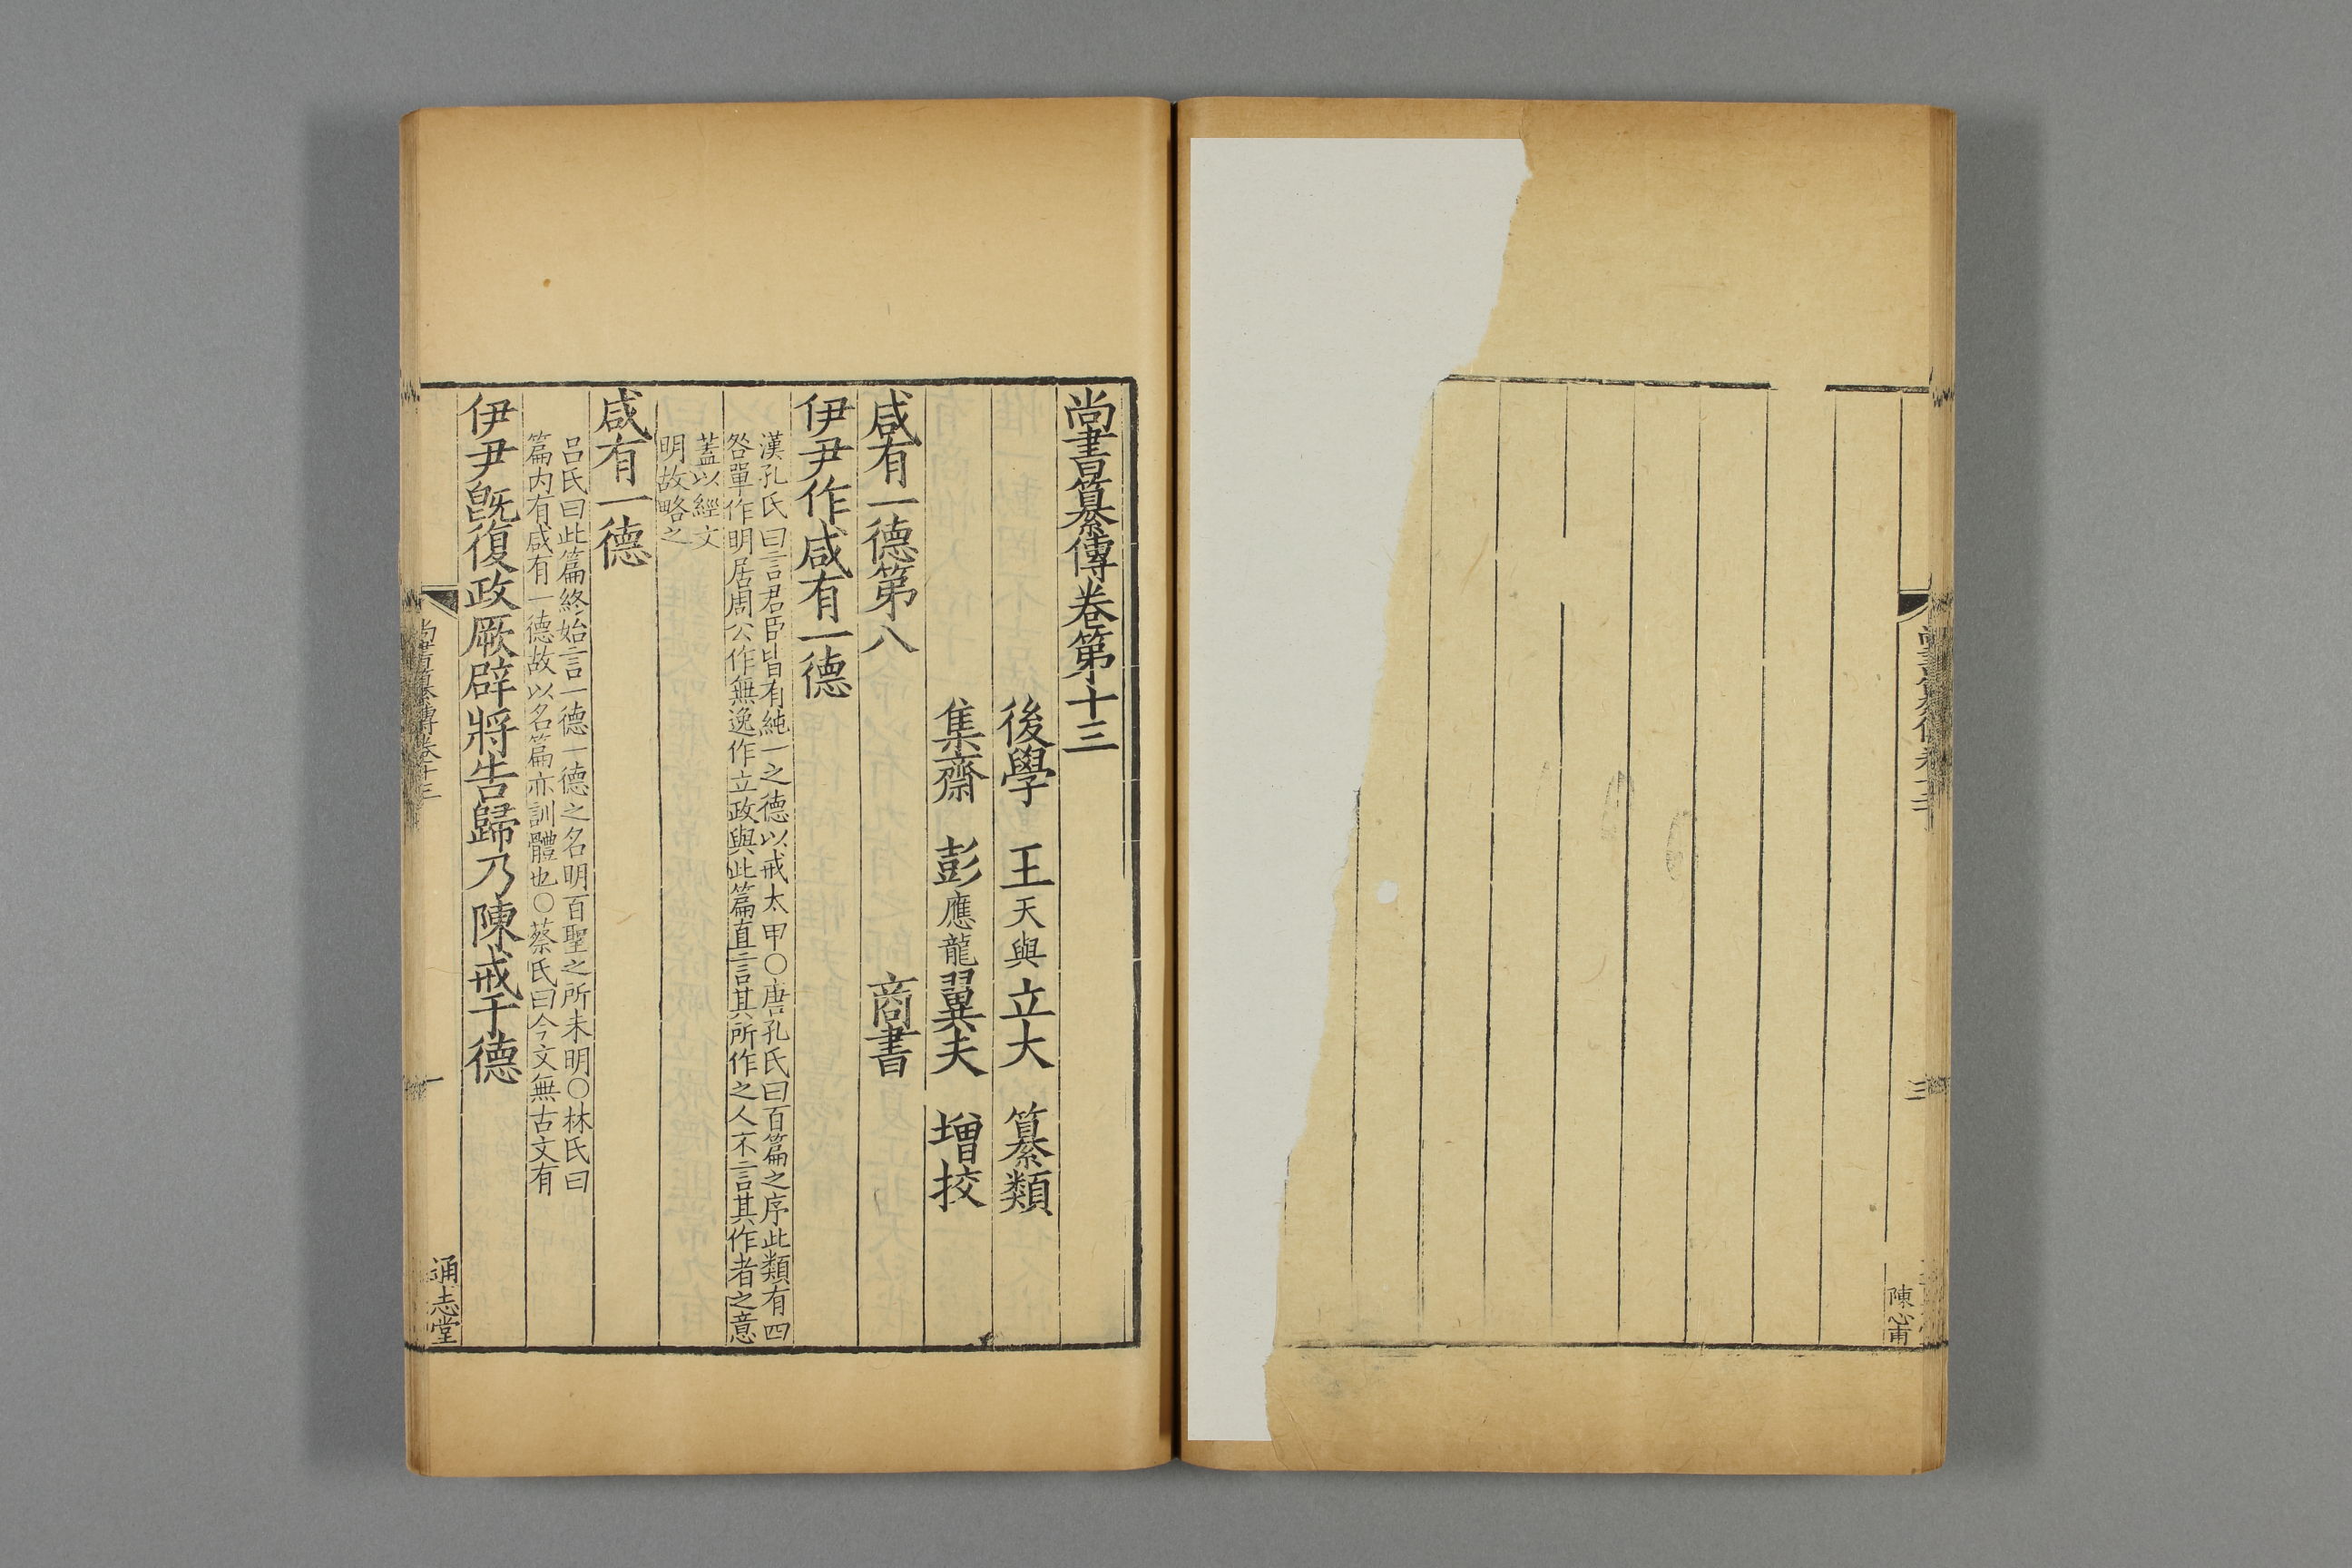 三
陳心甫
尚書纂傳卷第十三
後學 王天與立大 纂類
集齋 彭應龍翼夫 增挍
咸有一德第八 商書
伊尹作咸有一德
漢孔氏曰言君臣皆有純一之德以戒太甲〇唐孔氏曰百篇之序此類有四
咎單作明居周公作無逸作立政與此篇直言其所作之人不言其作者之意
蓋以經文
明故略之
咸有一德
呂氏曰此篇終始言一德一德之名明百聖之所未明〇林氏曰
篇内有咸有一德故以名篇亦訓體也〇蔡氏曰今文無古文有
伊尹旣復政厥辟將告歸乃陳戒于德
尚書纂傳卷十三
一
通志堂